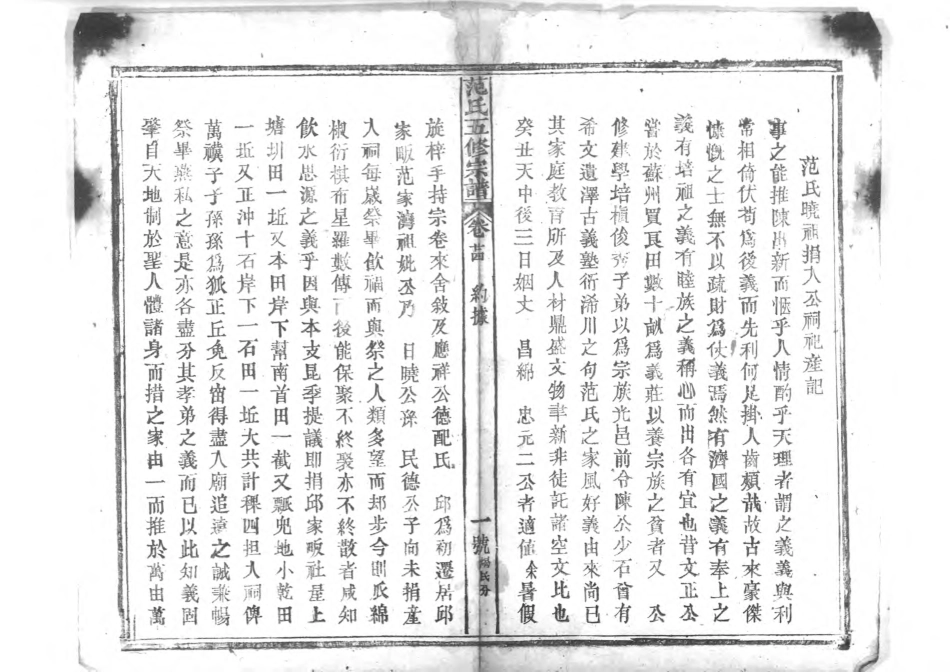 范氏曉祖捐大公祠祀產記
事之能推陳出新而愜乎人情酌乎天理者謂之義義與利
常相倚伏苟爲後義而先利何足掛人齒頰哉故古來豪傑
慷慨之士無不以疏財爲仗義焉然有濟國之義有奉上之
義有培祖之義有睦族之義稱心而出各有宜也昔文正公
嘗於蘇州買良田數十畝爲義莊以養宗族之貧者又 公
修建學培植俊秀子弟以爲宗族光邑前令陳公少石曾有
希文遺澤古義塾衍浠川之句范氏之家風好義由來尚已
其家庭教育所及人材鼎盛文物聿新非徒託諸空文比也
癸丑天中後三日姻丈 昌綿 忠元二公者適値余暑假
范氏五修宗譜 卷 約據 一號
旋梓手持宗卷來舍敍及應祥公德配氏 邱爲初遷居邱
家畈范家灣祖妣公乃 日曉公孫 民德公子向未捐產
入祠每歲祭畢飲福而與祭之人類多望而却步今則瓜綿
椒衍棋布星羅數傳而後能保聚不終聚亦不終散者咸知
飲水思源之義乎因與本支昆季提議即捐邱家畈社屋上
塘圳田一坵又本田岸下幫南首田一截又瓢兜地小乾田
一坵又正沖十石岸下一石田一坵大共計稞四担入祠俾
萬禩子子孫孫爲狐正丘兔反窟得盡入廟追遠之誠秉暢
祭畢燕私之意是亦各盡分其孝弟之義而已以此知義固
肇自天地制於聖人體諸身而措之家由一而推於萬由萬